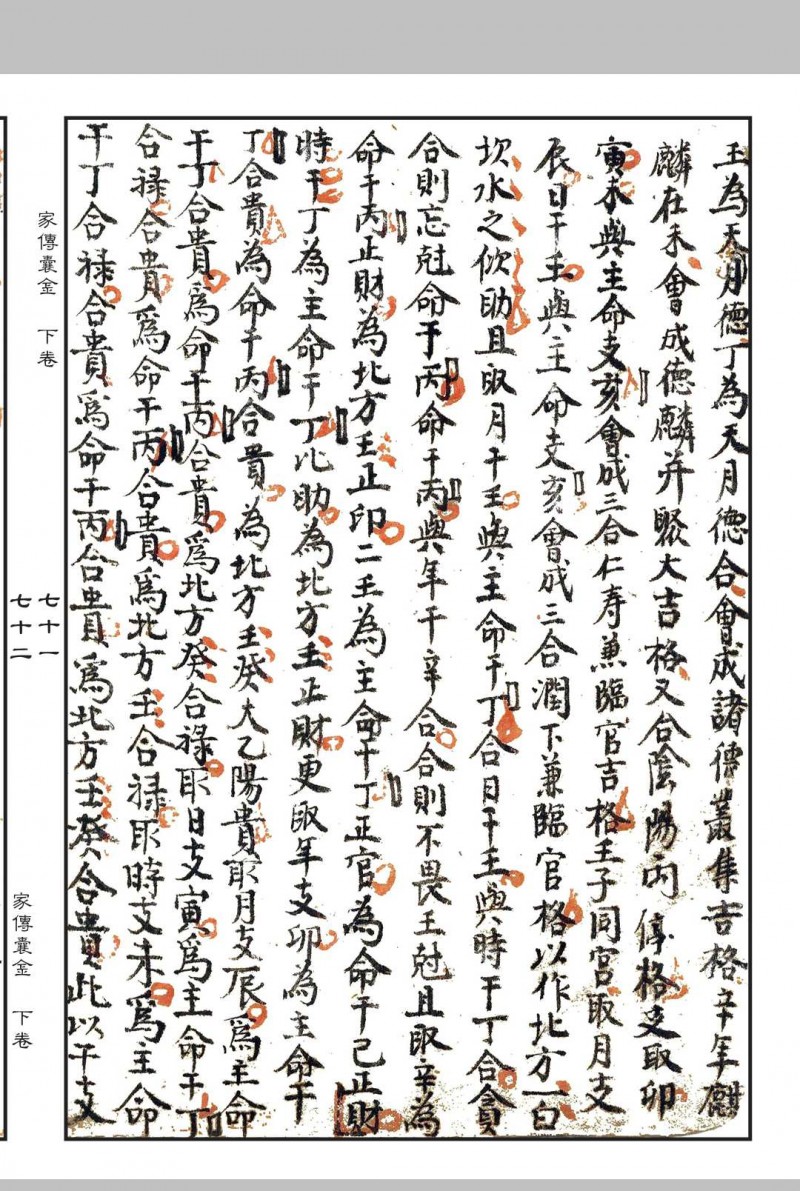 壬為天月德丁為天月德合會成諸德叢集吉格辛年麒
麟在未會成德麟并聚大吉格又合陰陽兩停格更取卯
寅未與主命支亥會成三合仁寿兼臨官吉格壬子同宫取月支
辰日干壬與主命支亥會成三合潤下兼臨官格以作北方一白
坎水之傚助且取月干壬與主命干丁合日干壬與時干丁合貪
合則忘尅命干丙命干丙與年干辛合合則不畏壬尅且取辛為
命干丙正財為北方壬正印二壬為主命干丁正官為命干己正財
時干丁為主命干丁比助為北方壬正財更取年支卯為主命干
丁合貴為命干丙合貴為北方壬癸太乙陽貴取月支辰爲主命
干丁合貴爲命干丙合貴爲北方癸合禄取日支寅爲主命干丁
合禄合貴爲命干丙合貴爲北方壬合禄取時支未爲主命
干丁合禄合貴爲命干丙合貴爲北方壬癸合貴此以干支
家傳囊金 下卷
七十一
七十二
家傳囊金 下卷